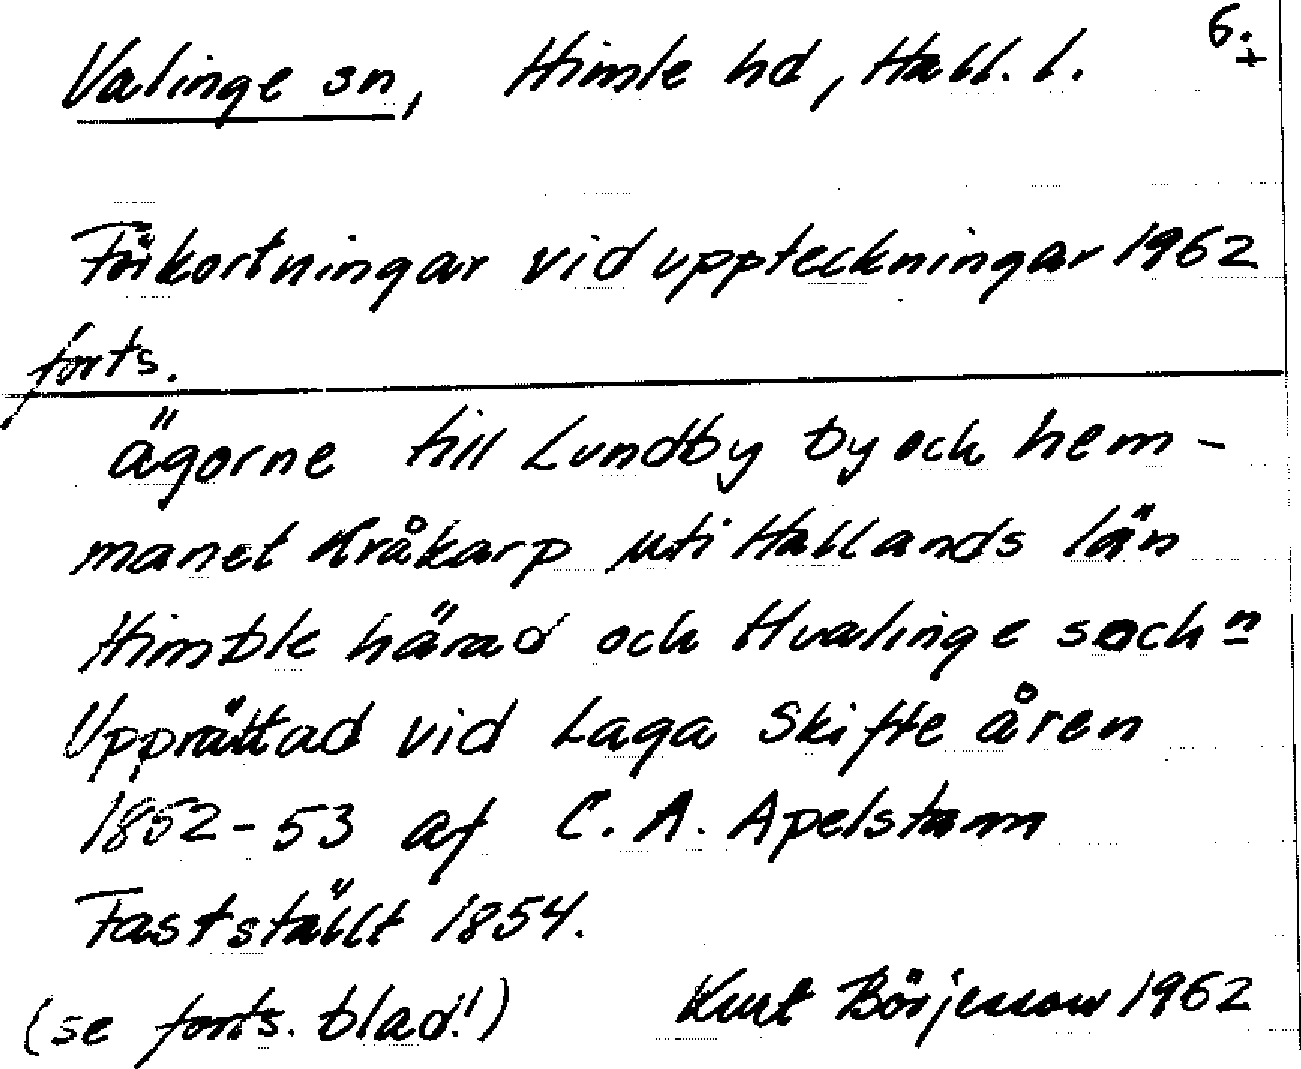 6.+
Valinge sn, Himle hd, Hall. l.
Förkortningar vid uppteckningar 1962
forts.
ägorne till Lundby by och hem-
manet Kråkarp uti Hallands län
Himble härad och Hvalinge sochn
Upprättad vid Laga Skifte åren
1852-53 af C. A. Apelstam
Fastställt 1854.
(se forts. blad!) Kurt Börjesson 1962